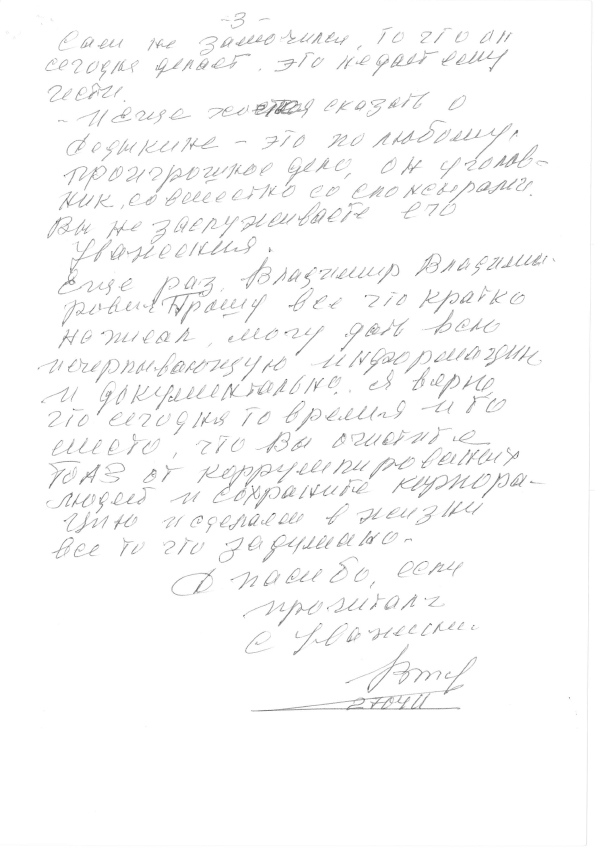 -3-
Сам не замочился, то что он
сегодня делает. это не дает ему
чести.
- И еще хо сказать о
Федыкине - это по любому,
проигрошное дело, он уголов-
ник, совместно со спонсорами.
Вы не заслуживаете его
уважения.
Еще раз, Владимир Владими-
рович Прошу все что кратко
написал, могу дать всю
исчерпывающую информацию
и документально. Я верю
что сегодня то время и то
место, что Вы очистите
ТоАЗ от коррумпированых
людей и сохраните корпора-
цию и сделаем в жизни
все то что задумано.
Спасибо, если
прочитали
С Уважением.
270411